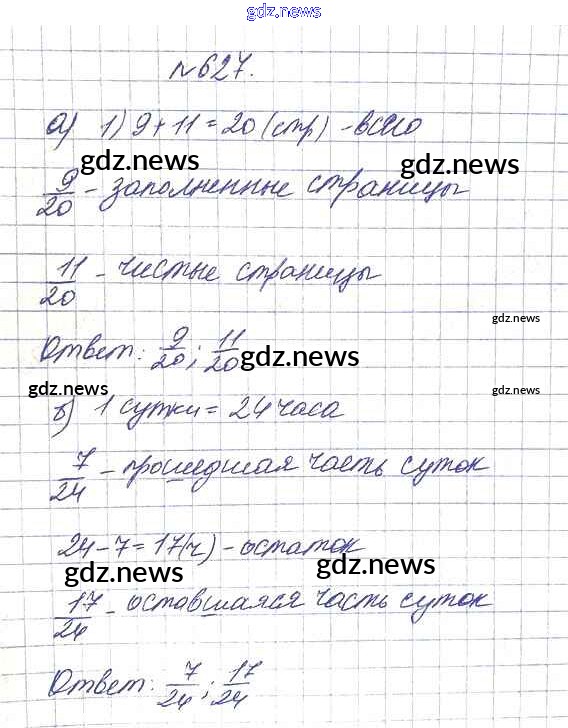 gdz.news
№627.
а) 1) 9+11=20(стр) - всего
gdz.news gdz.news
9/20 - заполненные страницы
11/20 - чистые страницы
gdz.news
Ответ: 9/20; 11/20
gdz.news
gdz.news gdz.news
б) 1 сутки = 24 часа
7/24 - прошедшая часть суток
24-7=17(ч) - остаток
gdz.news gdz.news
17/24 - оставшаяся часть суток
Ответ: 7/24; 17/24